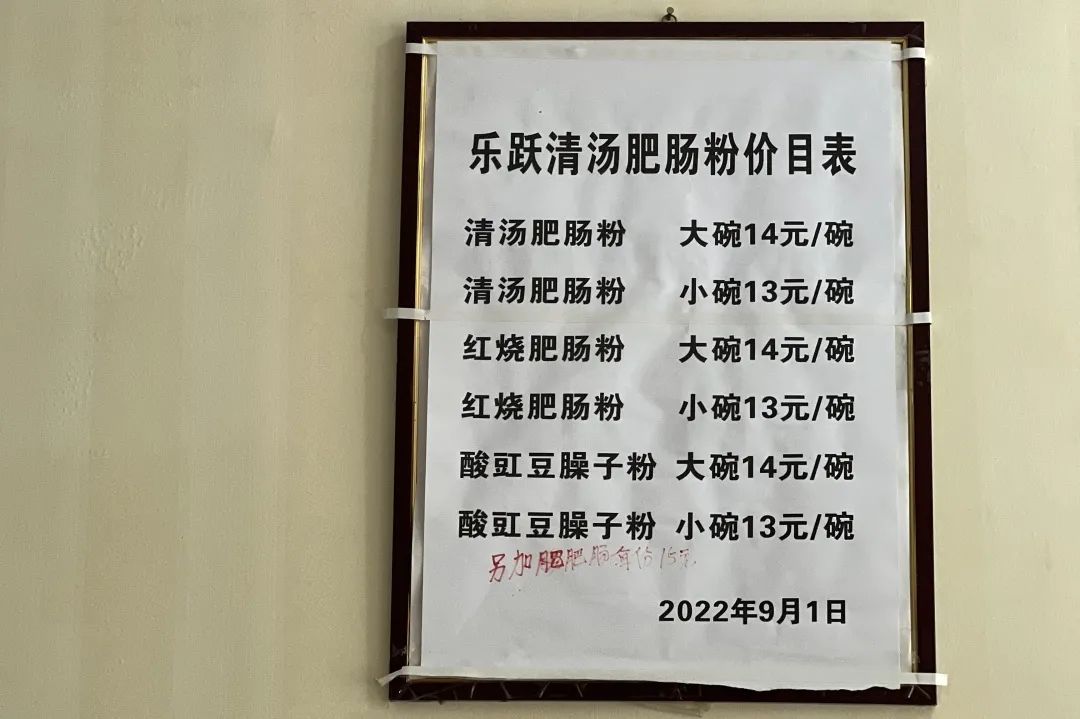 乐跃清汤肥肠粉价目表
清汤肥肠粉 大碗14元/碗
清汤肥肠粉 小碗13元/碗
红烧肥肠粉 大碗14元/碗
红烧肥肠粉 小碗13元/碗
酸豇豆臊子粉 大碗14元/碗
酸豇豆臊子粉 小碗13元/碗
另加肥肠每份15元
2022年9月1日